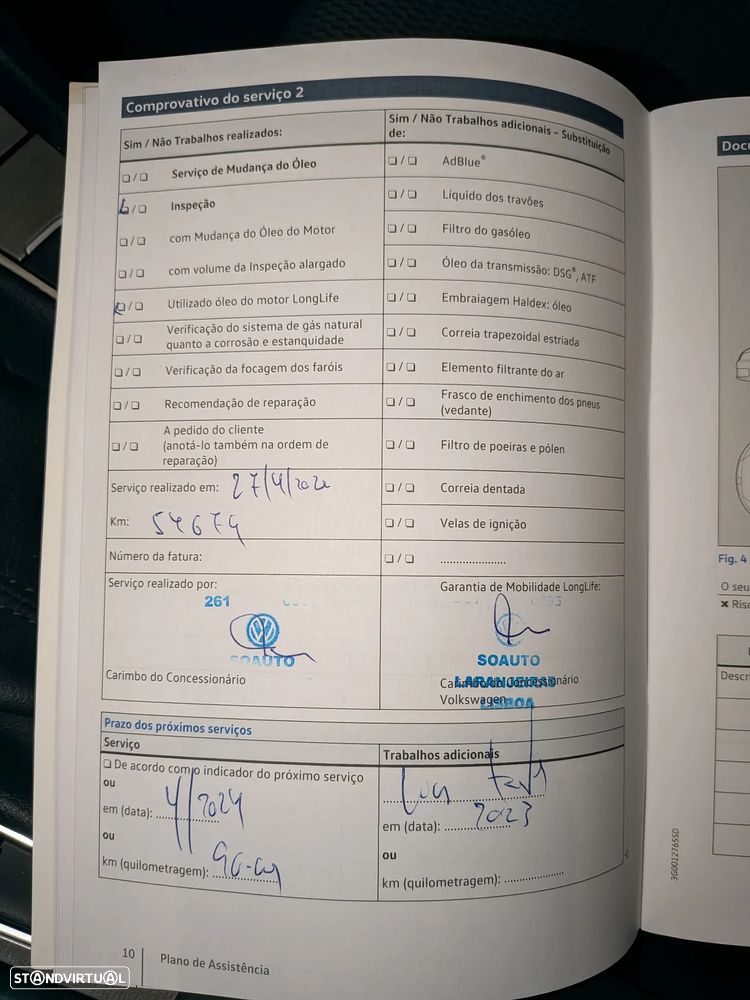 Comprovativo do serviço 2
Sim / Não Trabalhos realizados:
❏ / ❏ Serviço de Mudança do Óleo
❏ / ❏ Inspeção
❏ / ❏ com Mudança do Óleo do Motor
❏ / ❏ com volume da Inspeção alargado
❏ / ❏ Utilizado óleo do motor LongLife
❏ / ❏ Verificação do sistema de gás natural
quanto a corrosão e estanquidade
❏ / ❏ Verificação da focagem dos faróis
❏ / ❏ Recomendação de reparação
❏ / ❏ A pedido do cliente
(anotá-lo também na ordem de
reparação)
Serviço realizado em: 27/4/2022
Km: 54674
Número da fatura:
Serviço realizado por:
261
SOAUTO
Carimbo do Concessionário
Sim / Não Trabalhos adicionais – Substituição
de:
❏ / ❏ AdBlue®
❏ / ❏ Líquido dos travões
❏ / ❏ Filtro do gasóleo
❏ / ❏ Óleo da transmissão: DSG®, ATF
❏ / ❏ Embraiagem Haldex: óleo
❏ / ❏ Correia trapezoidal estriada
❏ / ❏ Elemento filtrante do ar
❏ / ❏ Frasco de enchimento dos pneus
(vedante)
❏ / ❏ Filtro de poeiras e pólen
❏ / ❏ Correia dentada
❏ / ❏ Velas de ignição
❏ / ❏ .....................
Garantia de Mobilidade LongLife:
SOAUTO
LARANJEIRAS
Carimbo do Concessionário
Volkswagen
LISBOA
Prazo dos próximos serviços
Serviço
❏ De acordo com o indicador do próximo serviço
ou
em (data): 4/2024
ou
km (quilometragem):
Trabalhos adicionais
em (data): 2023
ou
km (quilometragem): ..................
10 Plano de Assistência
3G0012765SD
Docu
Fig. 4
O seu
✖ Risc
Descr
STANDVIRTUAL